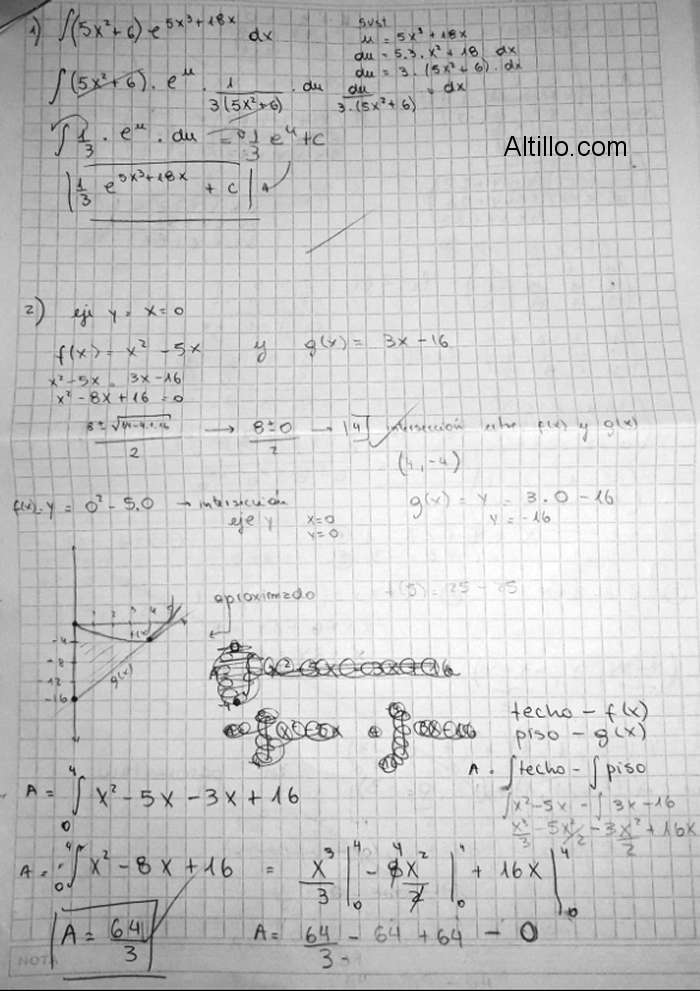 1) ∫(5x²+6) e^(5x³+18x) dx
Sust
u = 5x³+18x
du = 5.3.x²+18 dx
du = 3.(5x²+6).dx
du/3.(5x²+6) = dx
∫(5x²+6).e^u. 1/3(5x²+6) .du
∫ 1/3 . e^u . du = 1/3 e^u + c
1/3 e^(5x³+18x) + c
Altillo.com
2) eje y = x=0
f(x) = x² - 5x y g(x) = 3x - 16
x² - 5x = 3x - 16
x² - 8x + 16 = 0
8 ± √64-4.1.16 / 2 → 8±0 / 2 → 4 intersección entre f(x) y g(x)
(4, -4)
f(x) = y = 0² - 5.0 → intersección eje y x=0 y=0
g(x) = y = 3.0 - 16
y = -16
aproximado
f(5) = 25 - 25
1 2 3 4 5
-4
-8
-12
-16
f(x)
g(x)
techo - f(x)
piso - g(x)
A = ∫techo - ∫piso
∫x² - 5x - ∫3x - 16
x³/3 - 5x²/2 - 3x²/2 + 16x
A = ∫₀⁴ x² - 5x - 3x + 16
A = ∫₀⁴ x² - 8x + 16 = x³/3 |₀⁴ - 8x²/2 |₀⁴ + 16x |₀⁴
A = 64/3 - 64 + 64 - 0
A = 64/3
NOTA